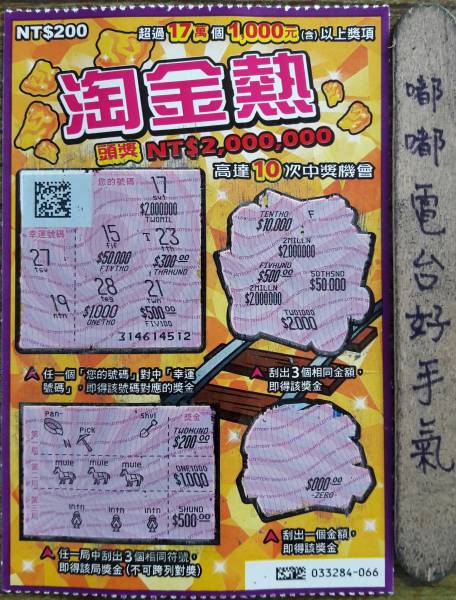 NT$200
超過17萬個1,000元(含)以上獎項
淘金熱
頭獎 NT$2,000,000
高達10次中獎機會
您的號碼
17
$2,000,000
TWOMIL
幸運號碼
15
FIF
$50,000
FIVTHO
T 23
TTH
$300.00
THRHUND
27
TSV
28
TEG
$1,000
ONETHO
21
TWN
$500.00
FIVIDO
19
NTN
314614512
TENTHO
$10,000
F
2MILLN
$2,000,000
FIVHUND
$500.00
2MILLN
$2,000,000
50THSND
$50,000
TWO1000
$2,000
任一個「您的號碼」對中「幸運
號碼」，即得該號碼對應的獎金
刮出3個相同金額，
即得該獎金
獎金
Pan-
N
Pick
Shvl
TWOHUND
$200.00
mule
mule
mule
ONE1000
$1,000
Intn
Intn
Intn
5HUND
$500.00
$000.00
-ZERO-
任一局中刮出3個相同符號，
即得該局獎金(不可跨列對獎)
刮出一個金額，
即得該獎金
033284-066
嘟嘟電台好手氣